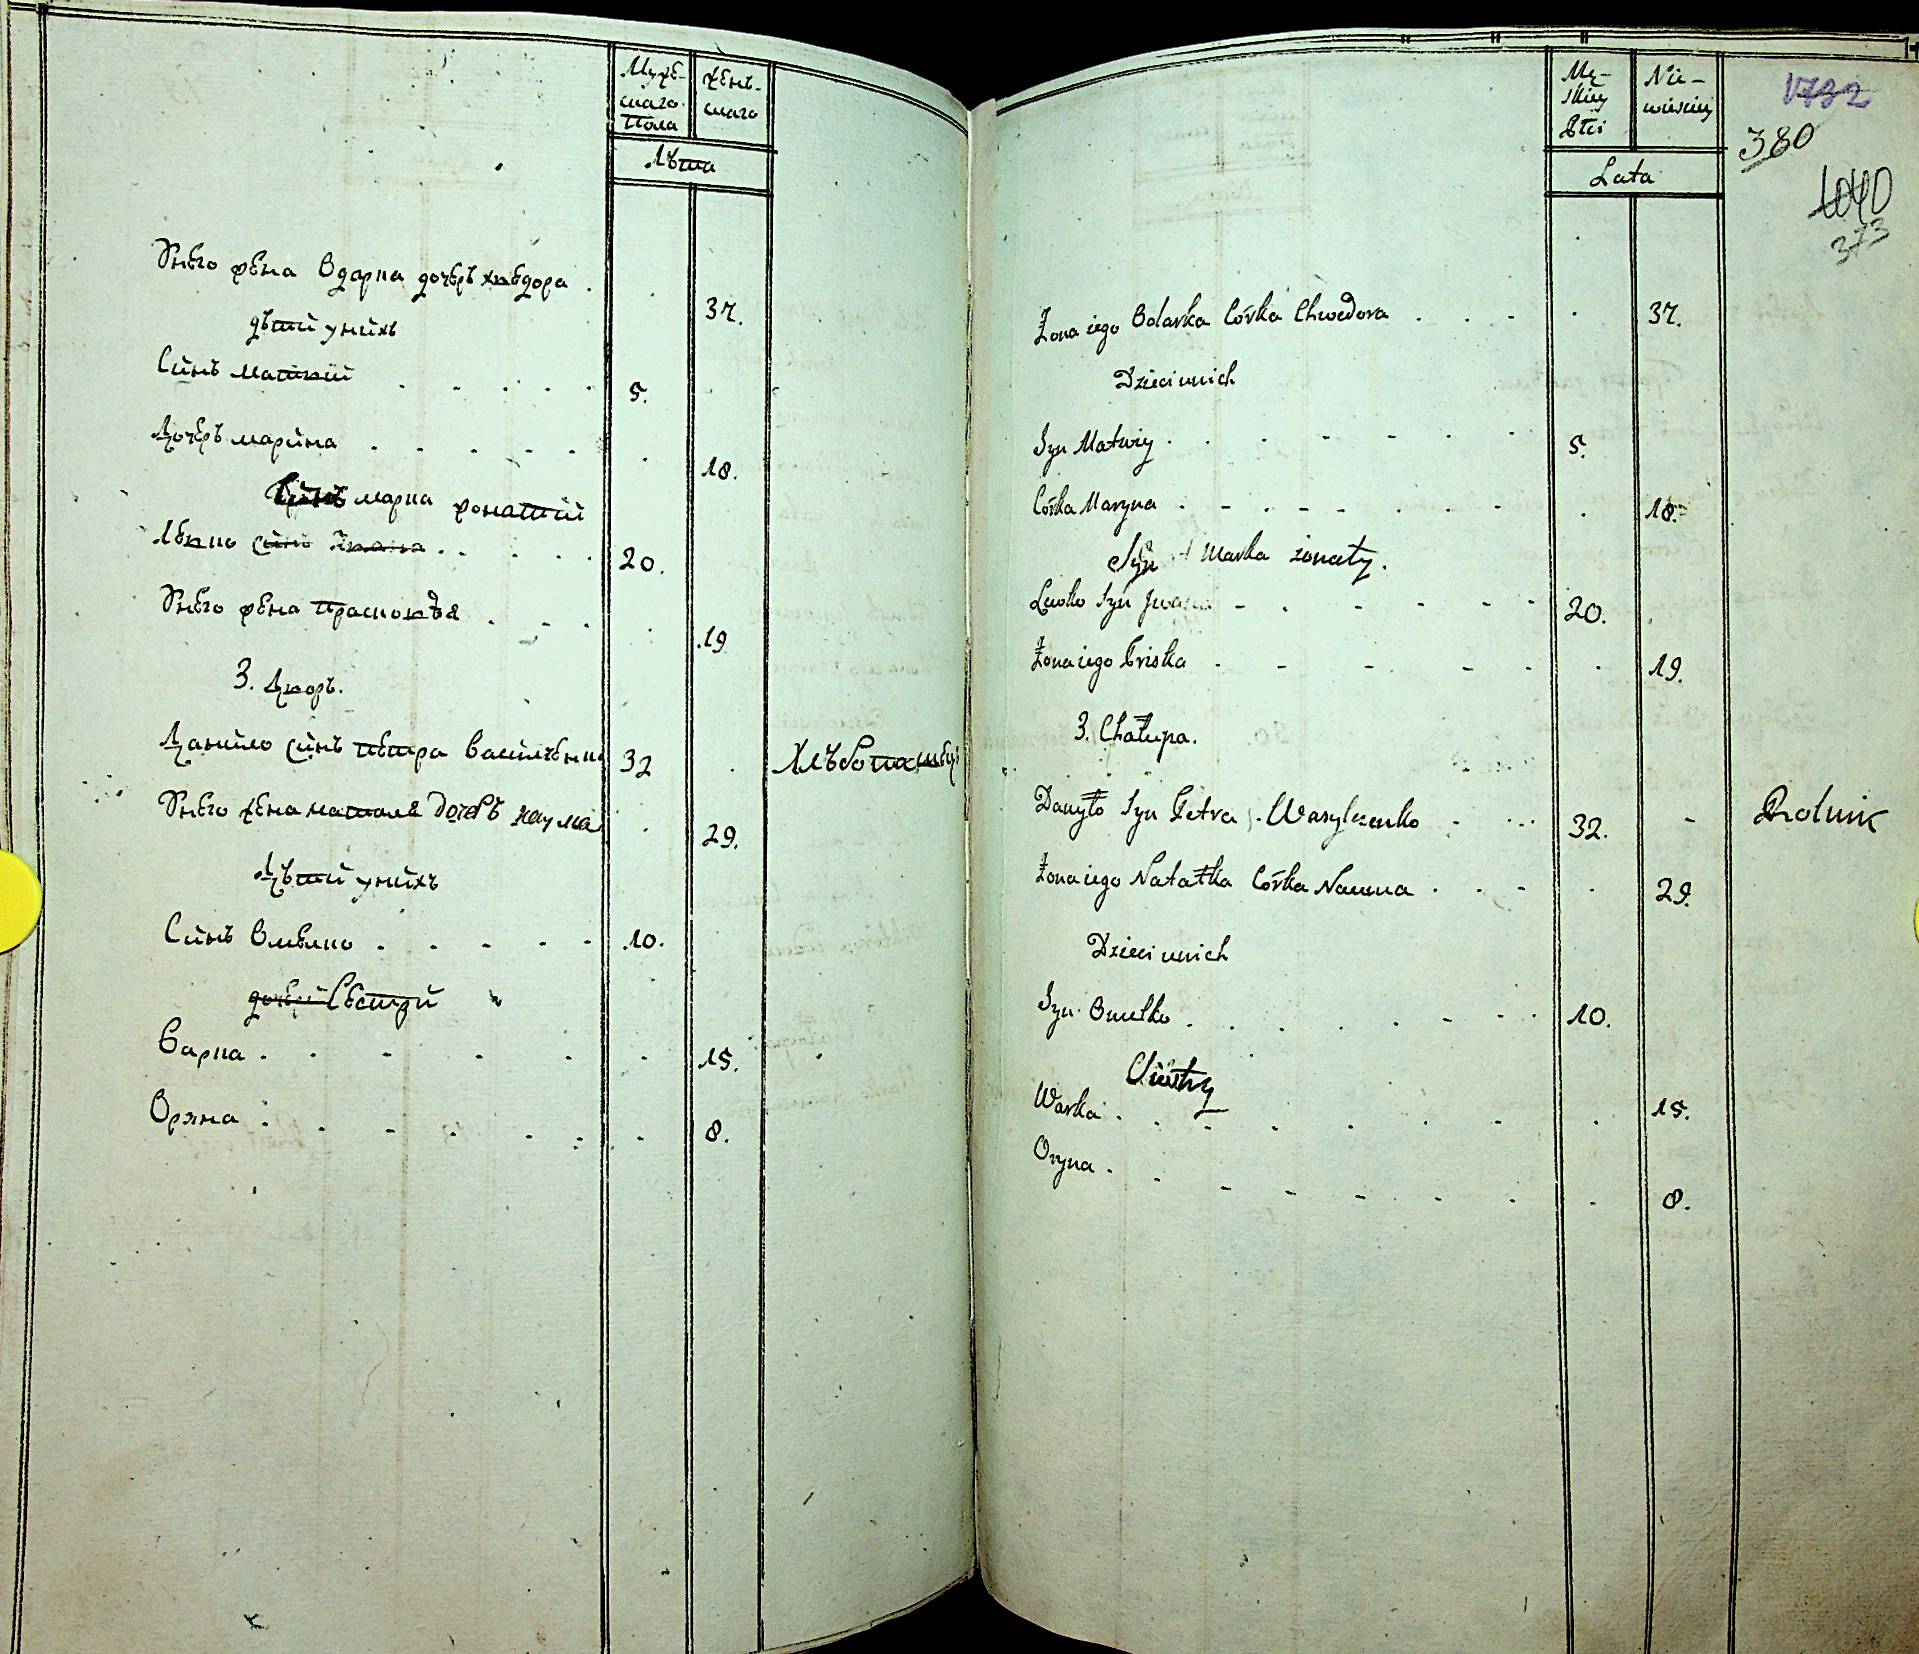 Муже-
ского
Пола
Жень-
ского
Лѣта
Унего жена Одарка дочеръ хведора
37.
дѣтй унйхъ
Сйнъ матвій
5.
Дочеръ марйна
18.
марка жонатій
Левко сйнъ Івана
20.
Унего жена
19
3. Дворъ.
Данйло сйнъ петра васйлъенко
32
Хлѣбопашецъ
Унего жена наталя дочеръ наума
29.
Дѣтй унйхъ
Сйнъ Омелко
10.
дочерй Сестрй
Варка
15.
Орина
8.
Mę-
skiey
Płci
Nie-
wieściey
Lata
1792
380
1040
373
Żona iego Odarka Córka Chwedora
37.
Dzieci unich
Syn Matwiy
5.
Córka Maryna
18.
Syn Marka żonaty.
Lewko Syn Jwana
20.
Żona iego Priska
19.
3. Chałupa.
Danyło Syn Petra Wasylczenko
32.
Rolnik
Żona iego Natałka Córka Nauma
29.
Dzieci unich
Syn Omelko
10.
Siestry
Warka
15.
Oryna
8.